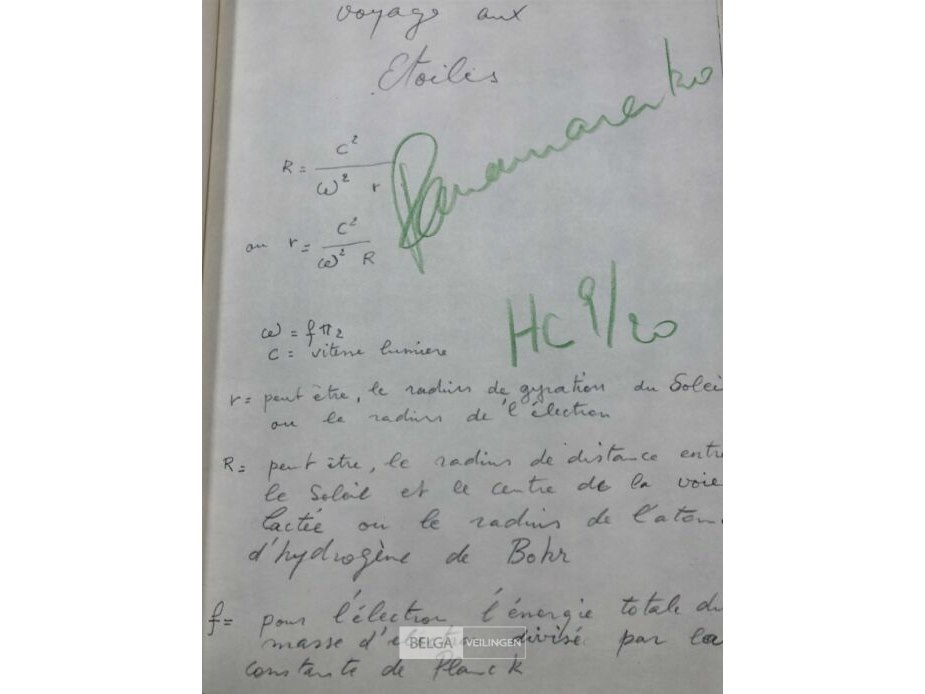 voyage aux
Etoiles
R = c² / ω² r
Panamarenko
ou r = c² / ω² R
HC 9/20
ω = f π 2
c = vitesse lumiere
r = peut être, le radius de gyration du Solei
ou le radius de l'élection
R = peut être, le radius de distance entre
le Soleil et le centre de la voie
lactée ou le radius de l'atom
d'hydrogène de Bohr
f = pour l'élection l'énergie totale du
masse d' divisé par la
constante de Planck
BELGA VEILINGEN